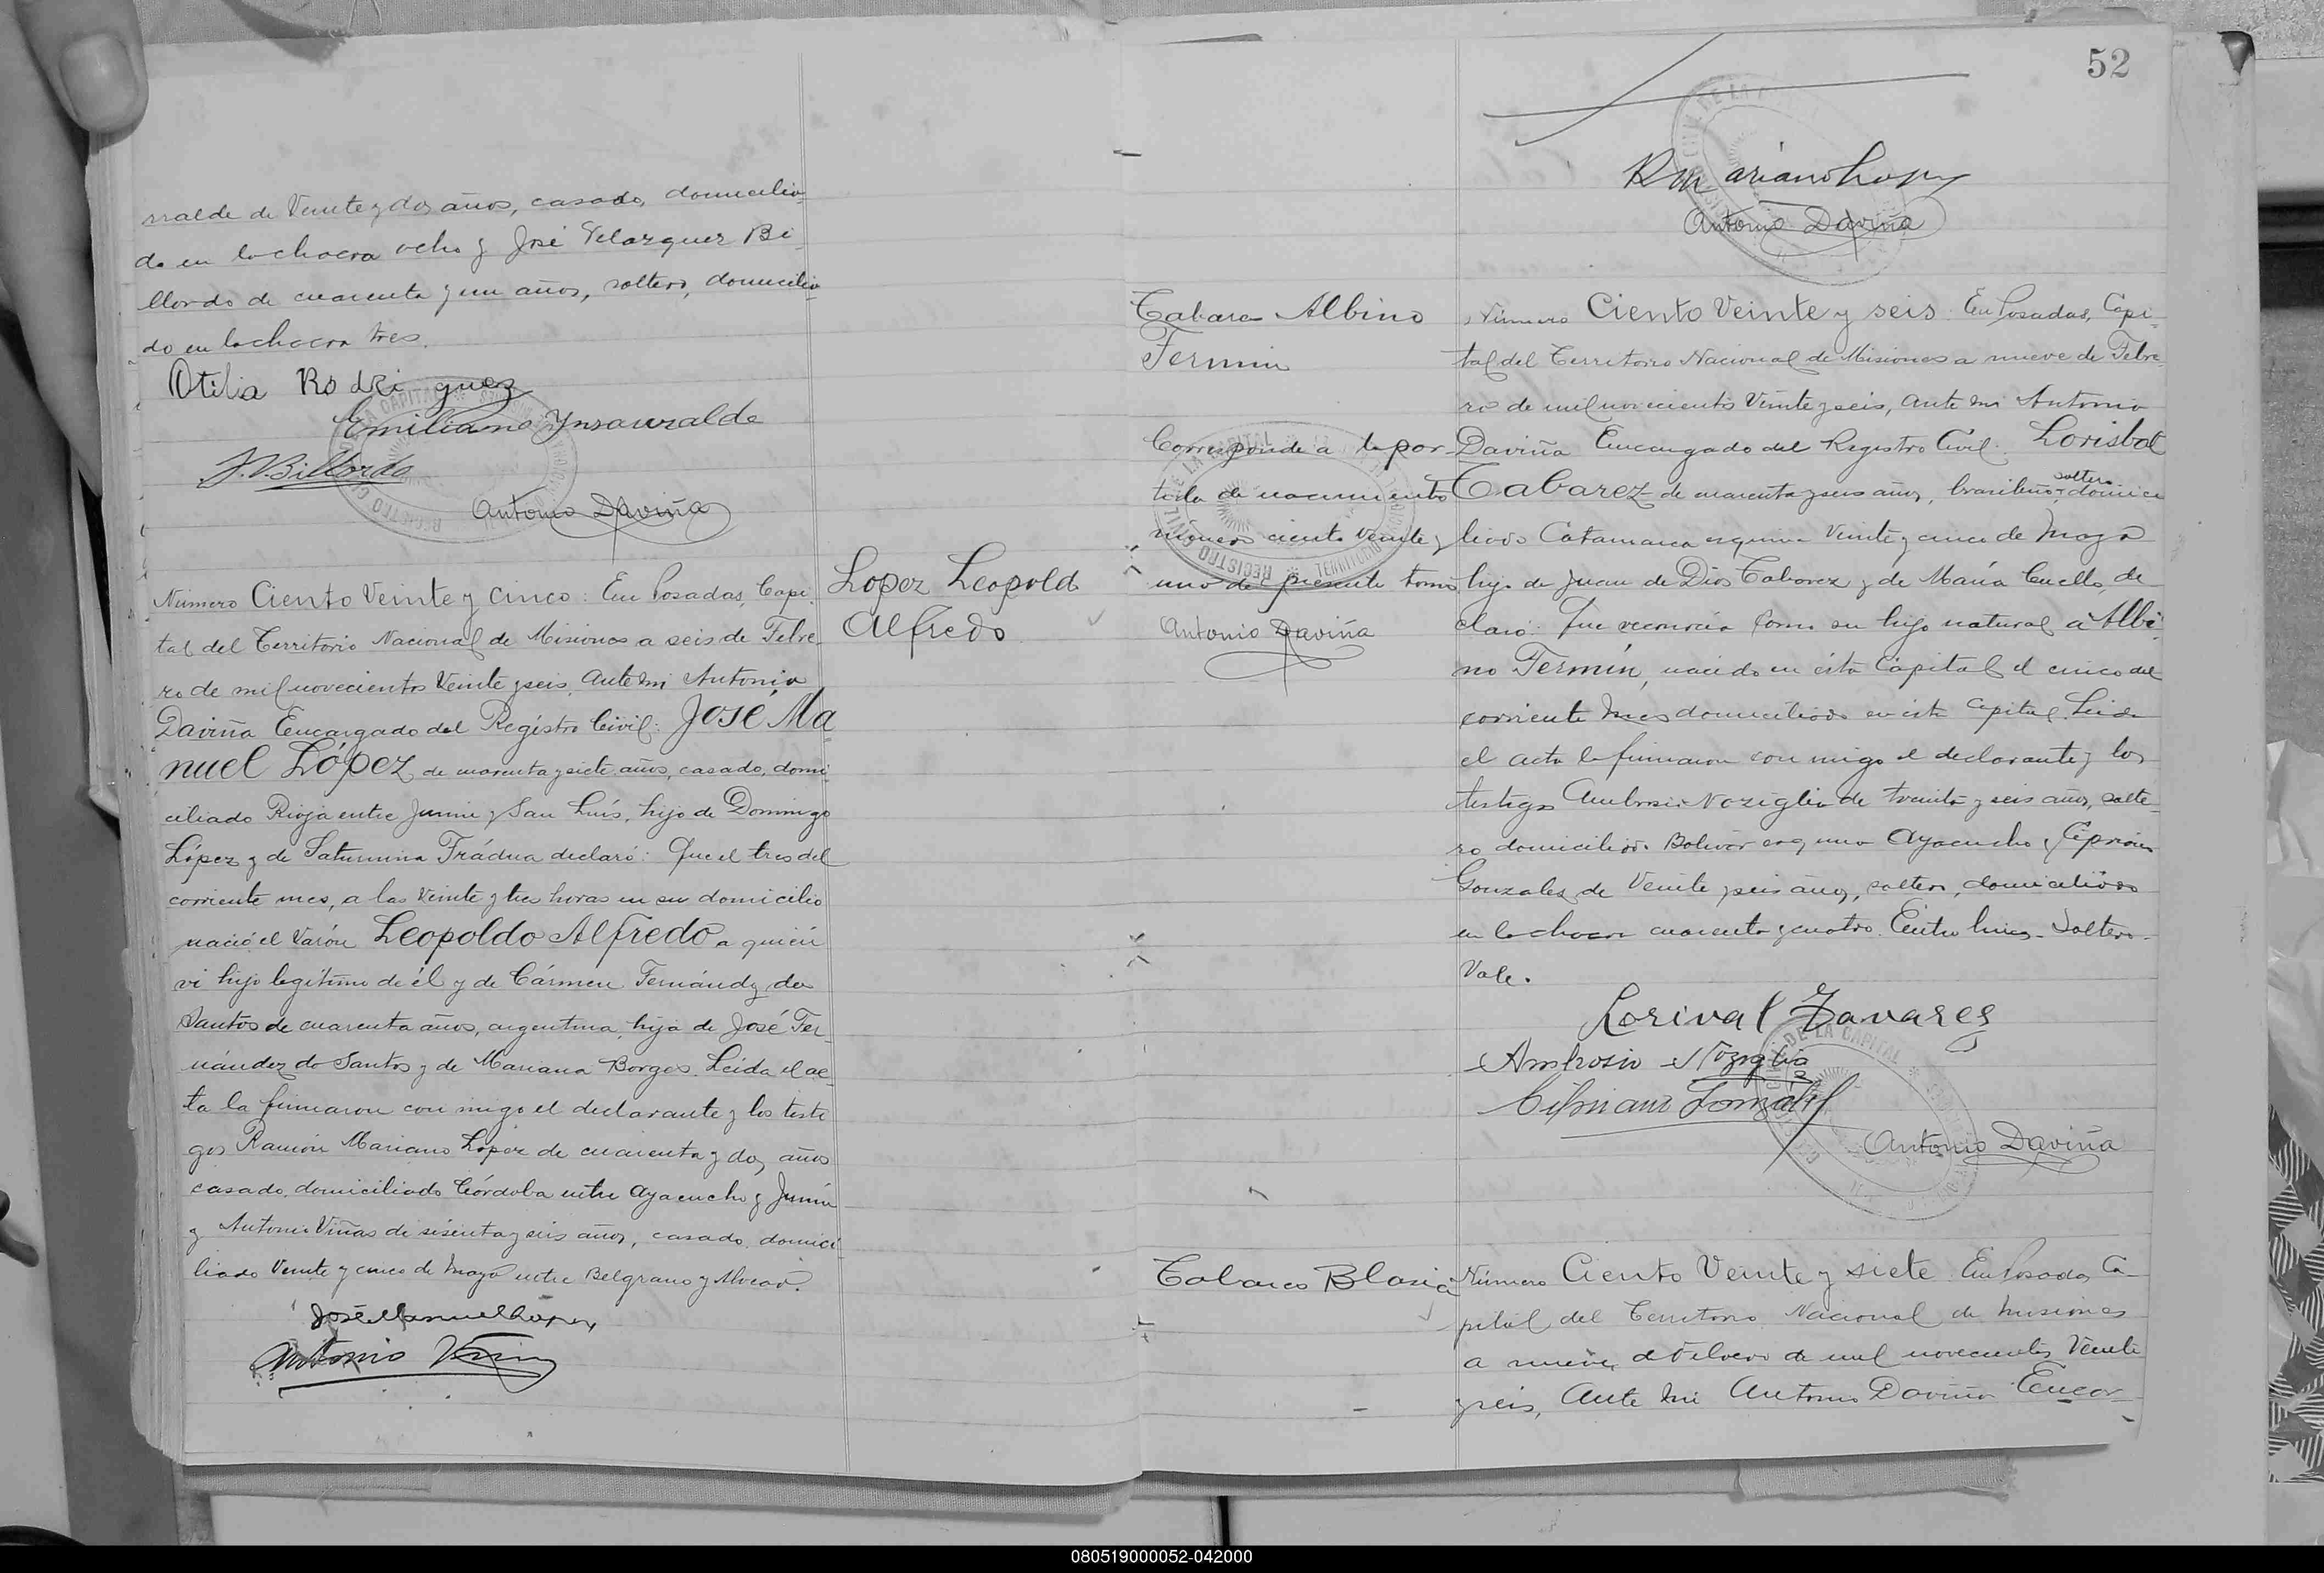 rralde de Veinte y dos años, casado, domicilia-
do en la chacra ocho y José Velazquez Bi-
llordo de cuarenta y un años, soltero, domicilia-
do en la chacra tres.
Otilia Rodriguez
Emiliano Ynsaurralde
J. Billordo
Antonio Daviña
Número Ciento Veinte y cinco: En Posadas, Capi-
tal del Territorio Nacional de Misiones a seis de Febre-
ro de mil novecientos Veinte y seis, Ante mi Antonio
Daviña Encargado del Registro Civil: José Ma
nuel López de cuarenta y siete años, casado, domi-
ciliado Rioja entre Junin y San Luís, hijo de Domingo
López y de Saturnina Frádua declaró: Que el tres del
corriente mes, a las Veinte y tres horas en su domicilio
nació el Varón Leopoldo Alfredo a quién
vi hijo legítimo de él y de Cármen Fernández dos
Santos de cuarenta años, argentina, hija de José Fer-
nández do Santos y de Mariana Borges. Leida el ac-
ta la firmaron con migo el declarante y los testi
gos Ramón Mariano López de cuarenta y dos años
casado, domiciliado Córdoba entre Ayacucho y Junin
y Antonio Viñas de sesenta y seis años, casado, domici-
liado Veinte y cinco de Mayo entre Belgrano y Alvear.
José Manuel Lopez
Antonio Viñas
Lopez Leopoldo
Alfredo
52
R Mariano Lopez
Antonio Daviña
Tabarez Albino
Fermin
Corresponde a la par-
tida de nacimiento
número ciento Veinte y
uno de presente tomo
Antonio Daviña
Número Ciento Veinte y seis: En Posadas, Capi-
tal del Territorio Nacional de Misiones a nueve de Febre-
ro de mil novecientos Veinte y seis, Ante mi Antonio
Daviña Encargado del Registro Civil: Lorisbal
soltero
Tabarez de cuarenta y seis años, brasileño, domici
liado Catamarca esquina Veinte y cinco de Mayo
hijo de Juan de Dios Tabarez y de María Cuello, de-
claró: Que reconocía como su hijo natural a Albi-
no Fermín, nacido en ésta Capital el cinco del
corriente mes domiciliado en ésta Capital. Leida
el acta la firmaron con migo el declarante y los
testigos Ambrosio Noziglia de treinta y seis años, solte-
ro domiciliado Bolivar esquina Ayacucho y Cipriano
Gonzalez de Veinte y seis años, soltero, domiciliado
en la chacra cuarenta y cuatro. Entre lineas - Soltero -
Vale.
Lorival Tavares
Ambrosio Noziglia
Cipriano Gonzalez
Antonio Daviña
Tabarez Blasia
Número Ciento Veinte y siete: En Posadas, Ca-
pital del Territorio Nacional de Misiones
a nueve de Febrero de mil novecientos Veinte
y seis, Ante mi Antonio Daviña Encar-
080519000052-042000